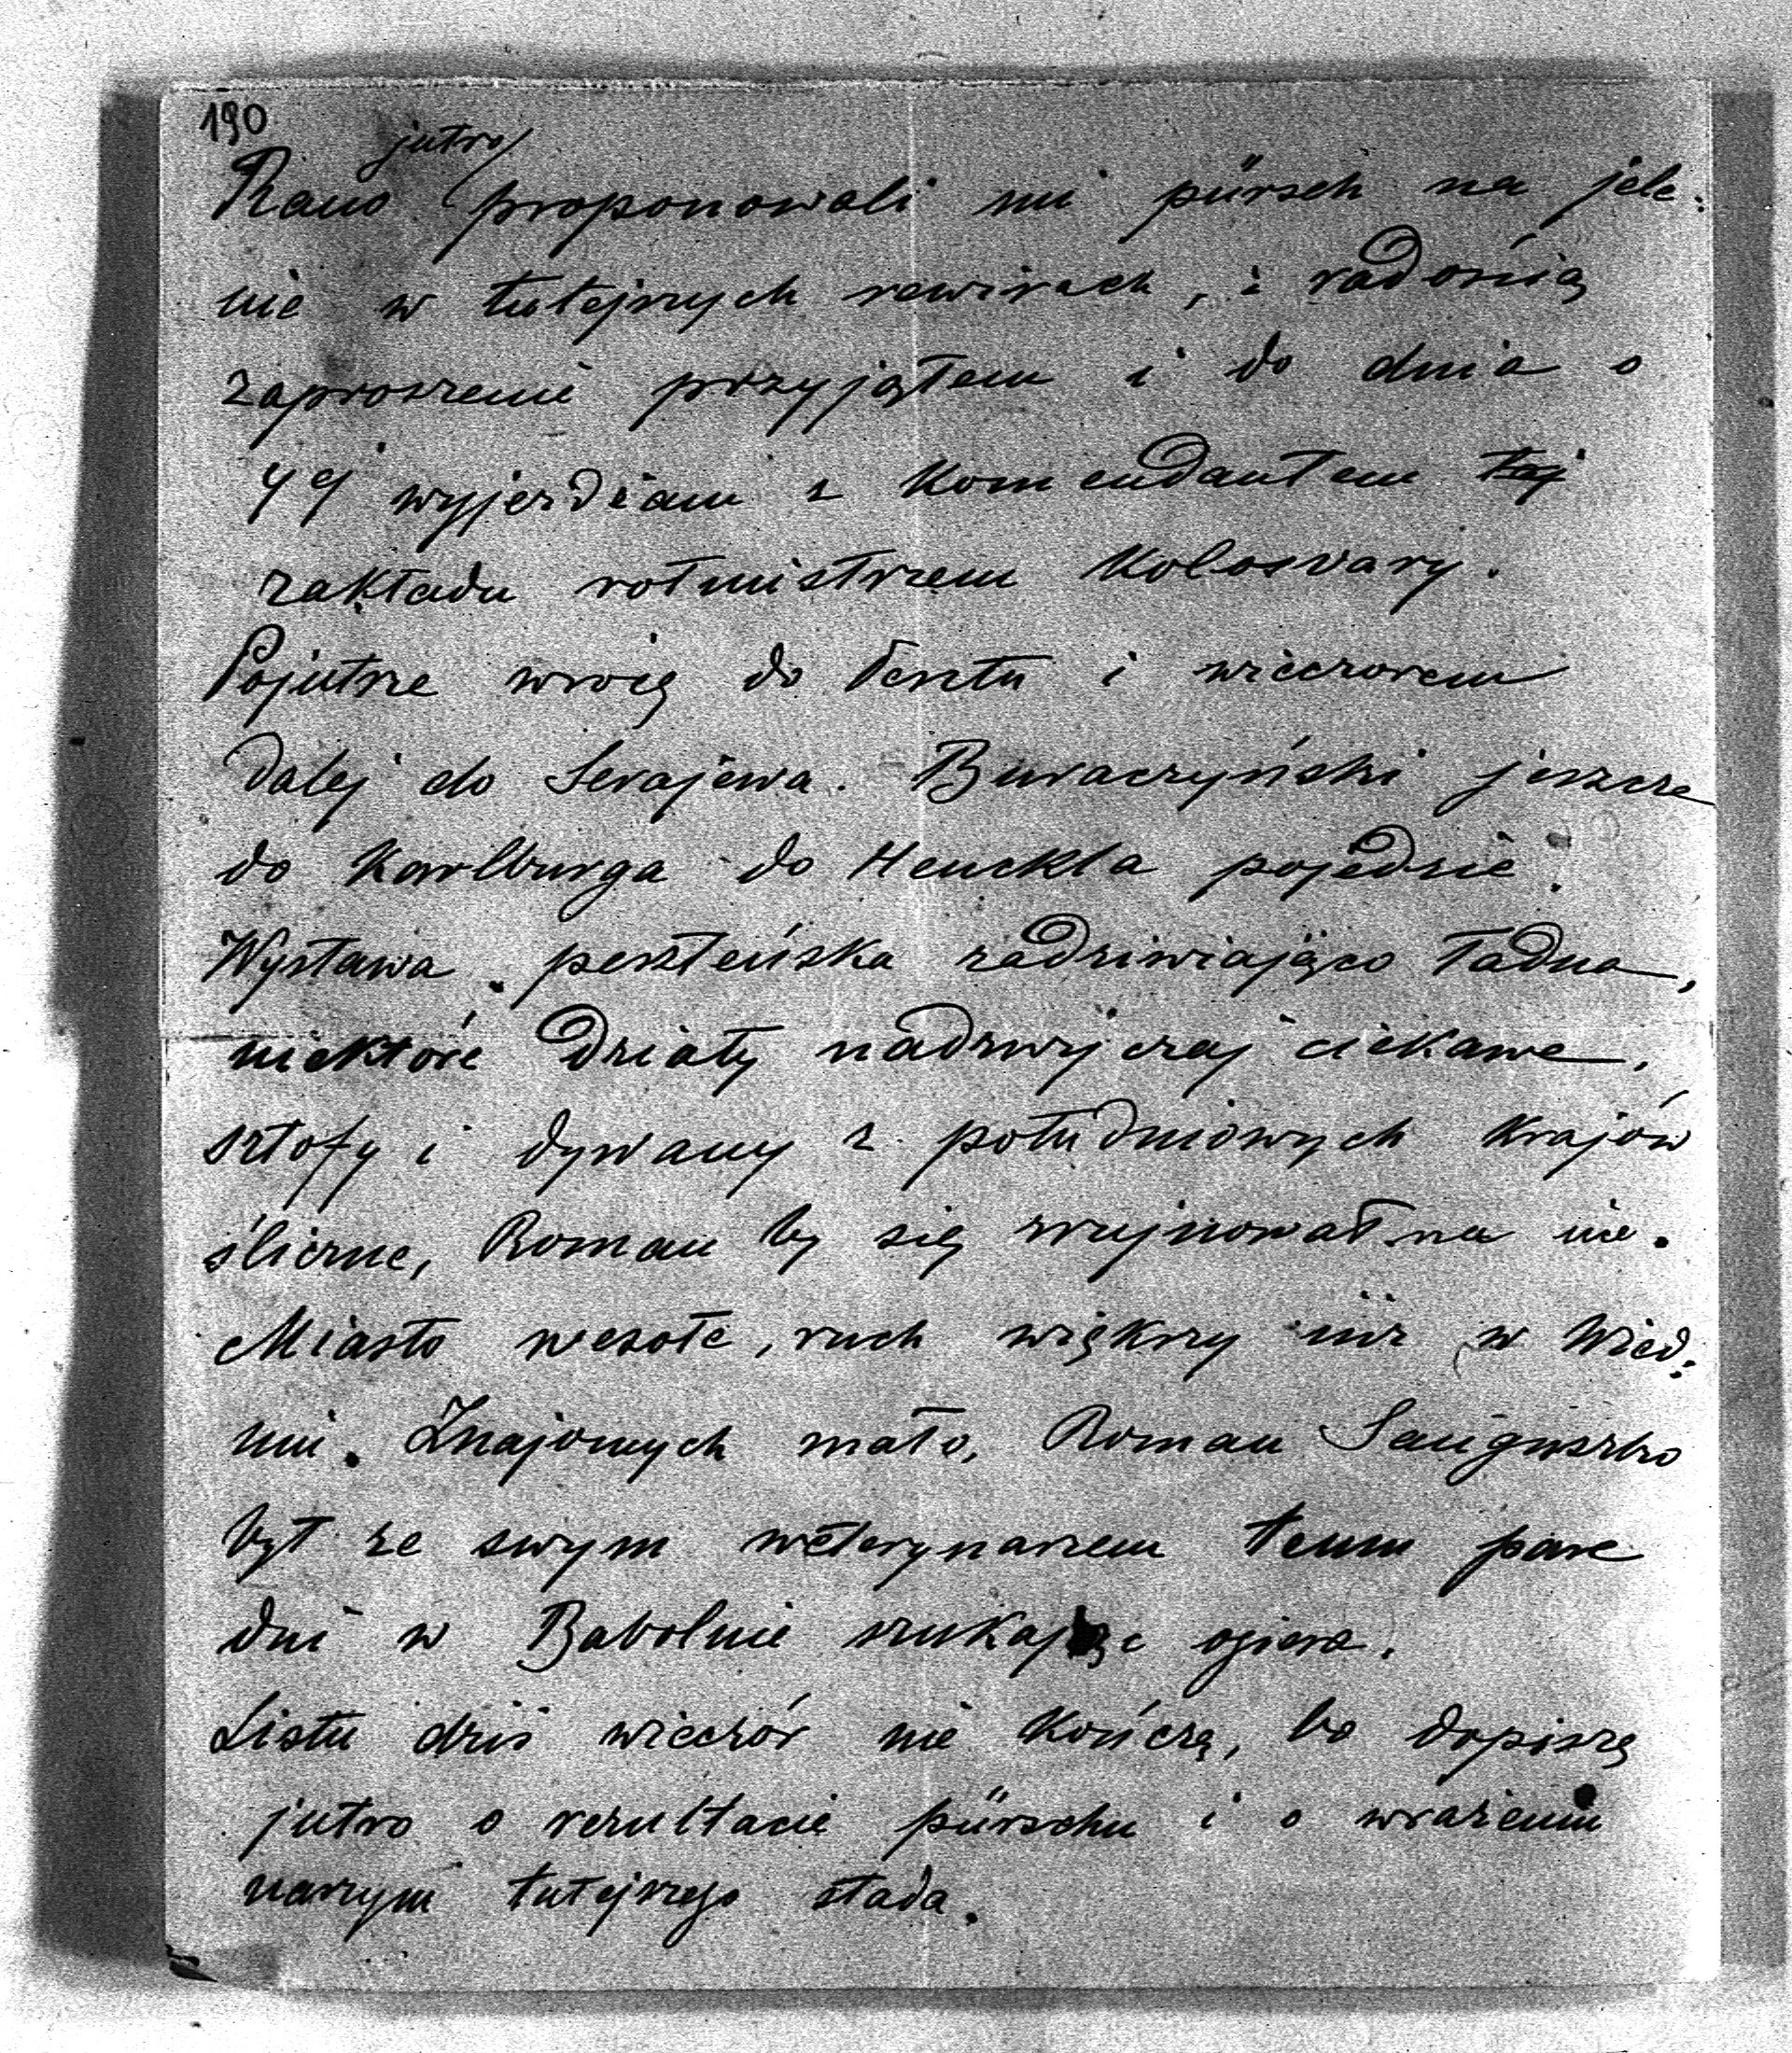 190
jutro
Rano proponowali mi pürsch na jele-
nie w tutejszych rewirach, z radością
zaproszenie przyjąłem i do dnia o
wyjeżdżam z Komendantem tej
zakładu rotmistrzem Kolosvary.
Pojutrze wrócę do Pesztu i wieczorem
dalej do Serajewa. Buraczyński jeszcze
do Karlburga do Henckla pojedzie.
Wystawa peszteńska zadziwiająco ładna,
niektóre działy nadzwyczaj ciekawe,
sztofy i dywany z południowych krajów
śliczne, Roman by się zrujnował na nie.
Miasto wesołe, ruch większy niż w Wied-
niu. Znajomych mało, Roman Sanguszko
był ze swym weterynarzem temu parę
dni w Babolnie szukając ogiera.
Listu dziś wieczór nie kończę, bo dopiszę
jutro o rezultacie pürschu i o wrażeniu
naszym tutejszego stada.